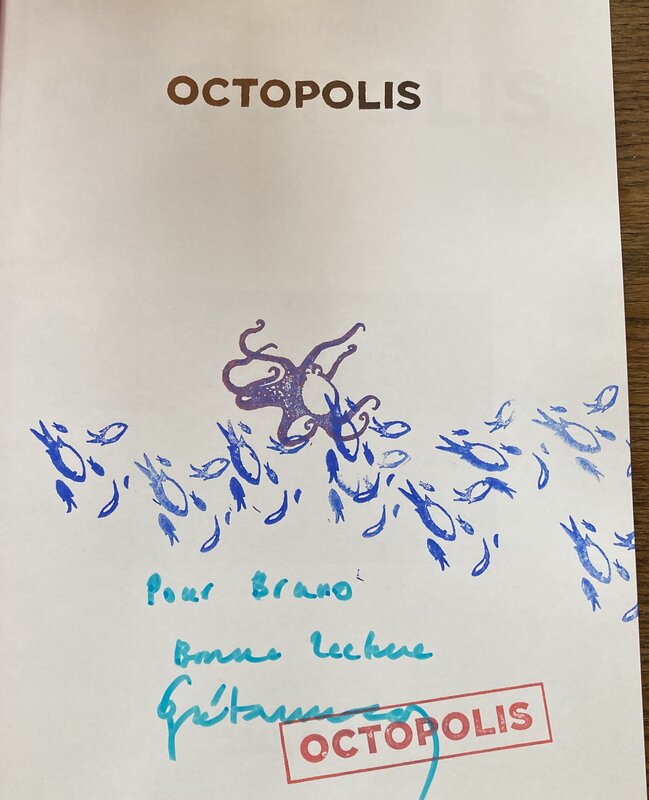 OCTOPOLIS
Pour Bruno
Bonne lecture
OCTOPOLIS